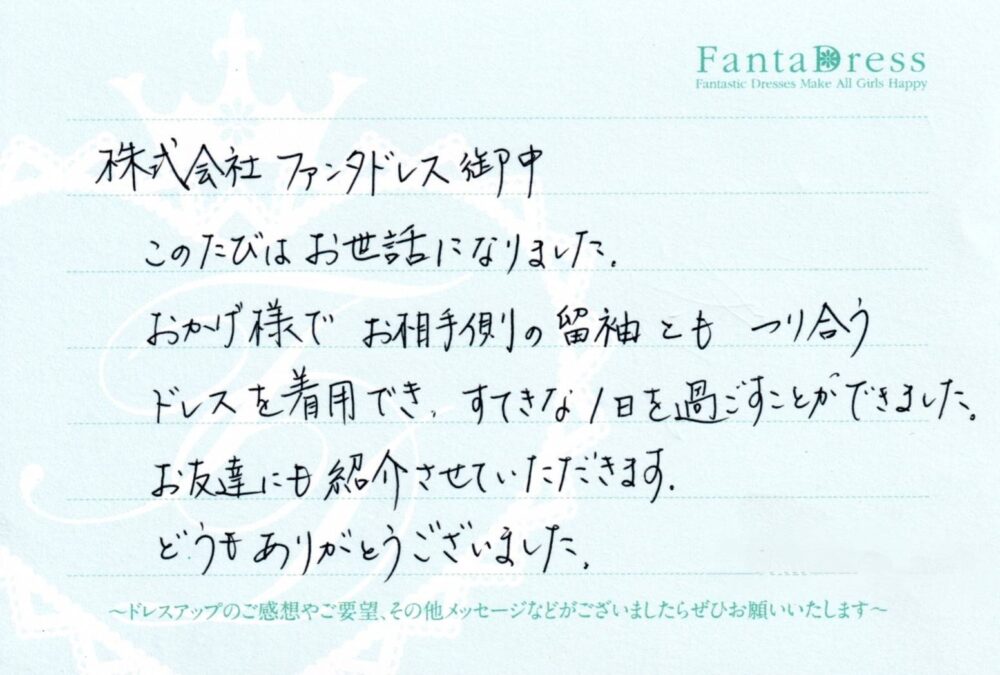 FantaDress
Fantastic Dresses Make All Girls Happy
株式会社 ファンタドレス 御中
このたびはお世話になりました。
おかげ様で お相手側の留袖とも つり合う
ドレスを着用でき、すてきな1日を過ごすことができました。
お友達にも紹介させていただきます。
どうもありがとうございました。
～ドレスアップのご感想やご要望、その他メッセージなどがございましたらぜひお願いいたします～